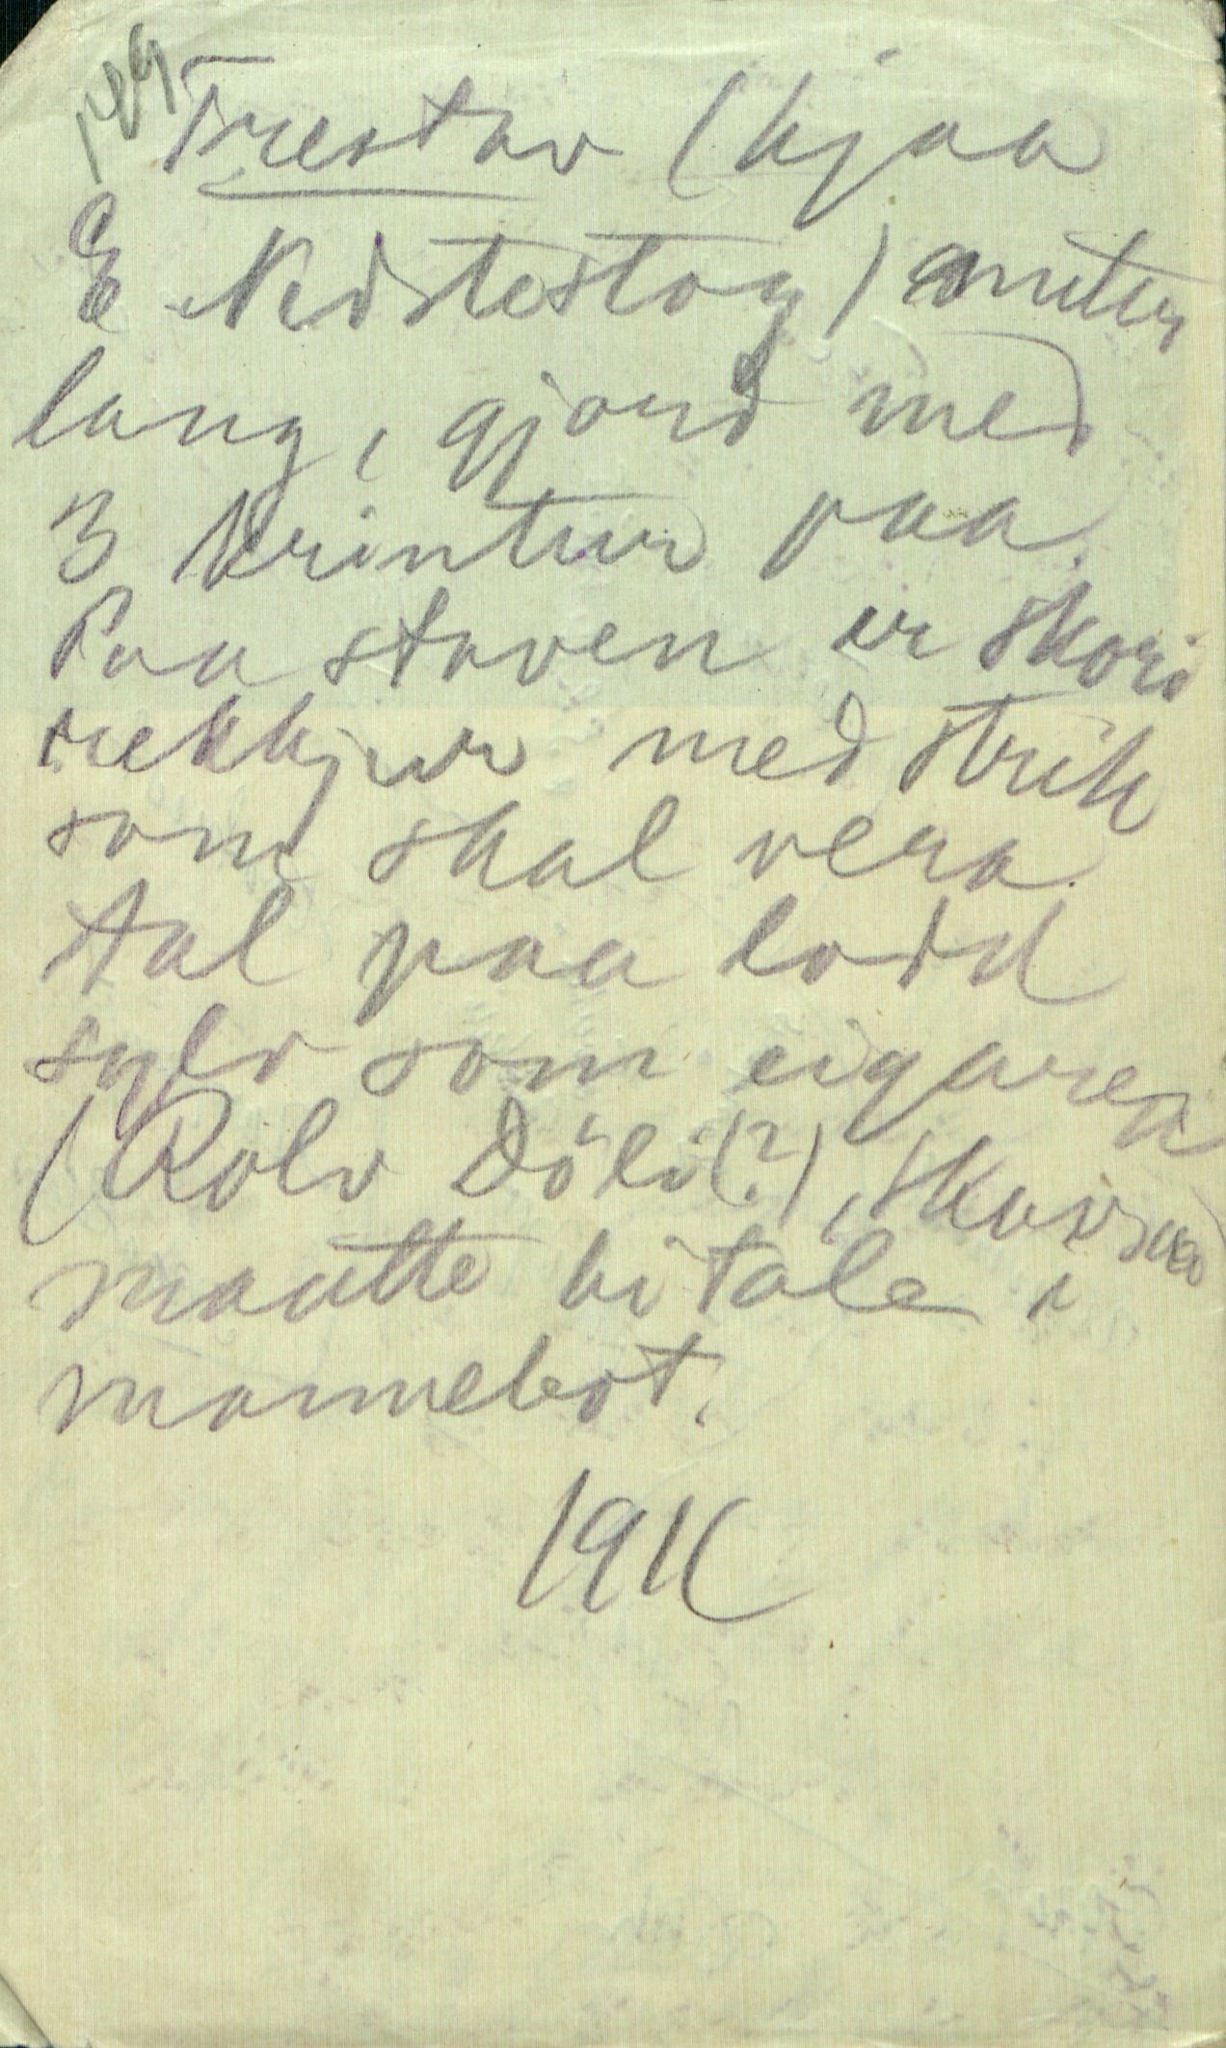 149
Trestav (hjaa
E Nistestog) 
lang, gjord med
3 krintur paa.
Paa staven er skori
rekkjur med strik
som skal vera
tal paa lodd
sylv som eigaren
(Rolv Döli(?),
maatte bitale i
mannebot.
191